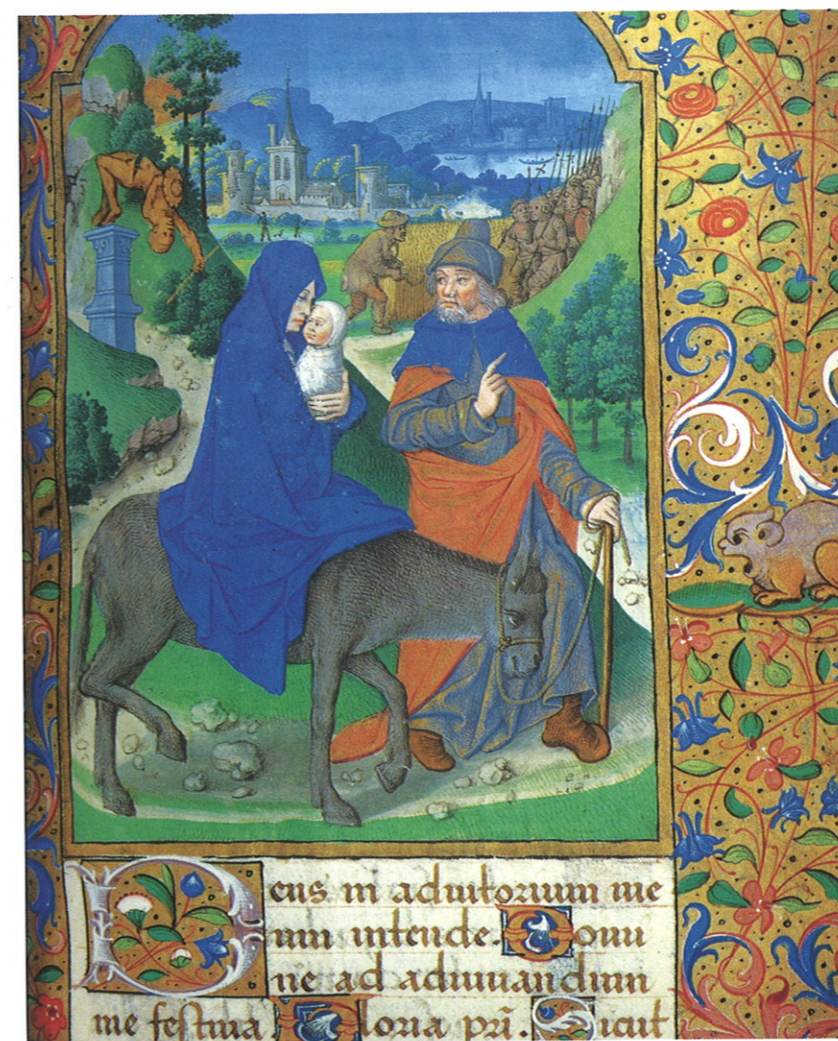 Deus in adiutorium me
um intende. Domi
ne ad adiuuandum
me festina. Gloria pri̅. Sicut